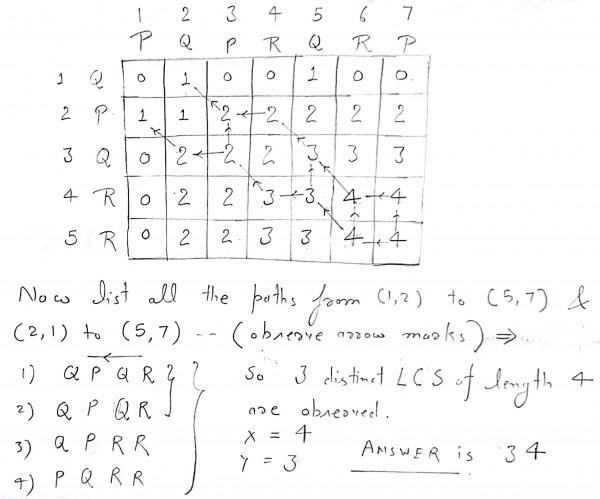 1 2 3 4 5 6 7
P Q P R Q R P
1 Q 0 1 0 0 1 0 0
2 P 1 1 2 2 2 2 2
3 Q 0 2 2 2 3 3 3
4 R 0 2 2 3 3 4 4
5 R 0 2 2 3 3 4 4
Now list all the paths from (1,2) to (5,7) &
(2,1) to (5,7) -- (observe arrow marks) ⇒
1) Q P Q R
2) Q P Q R
3) Q P R R
4) P Q R R
So 3 distinct LCS of length 4
are observed.
X = 4
Y = 3
ANSWER is 34